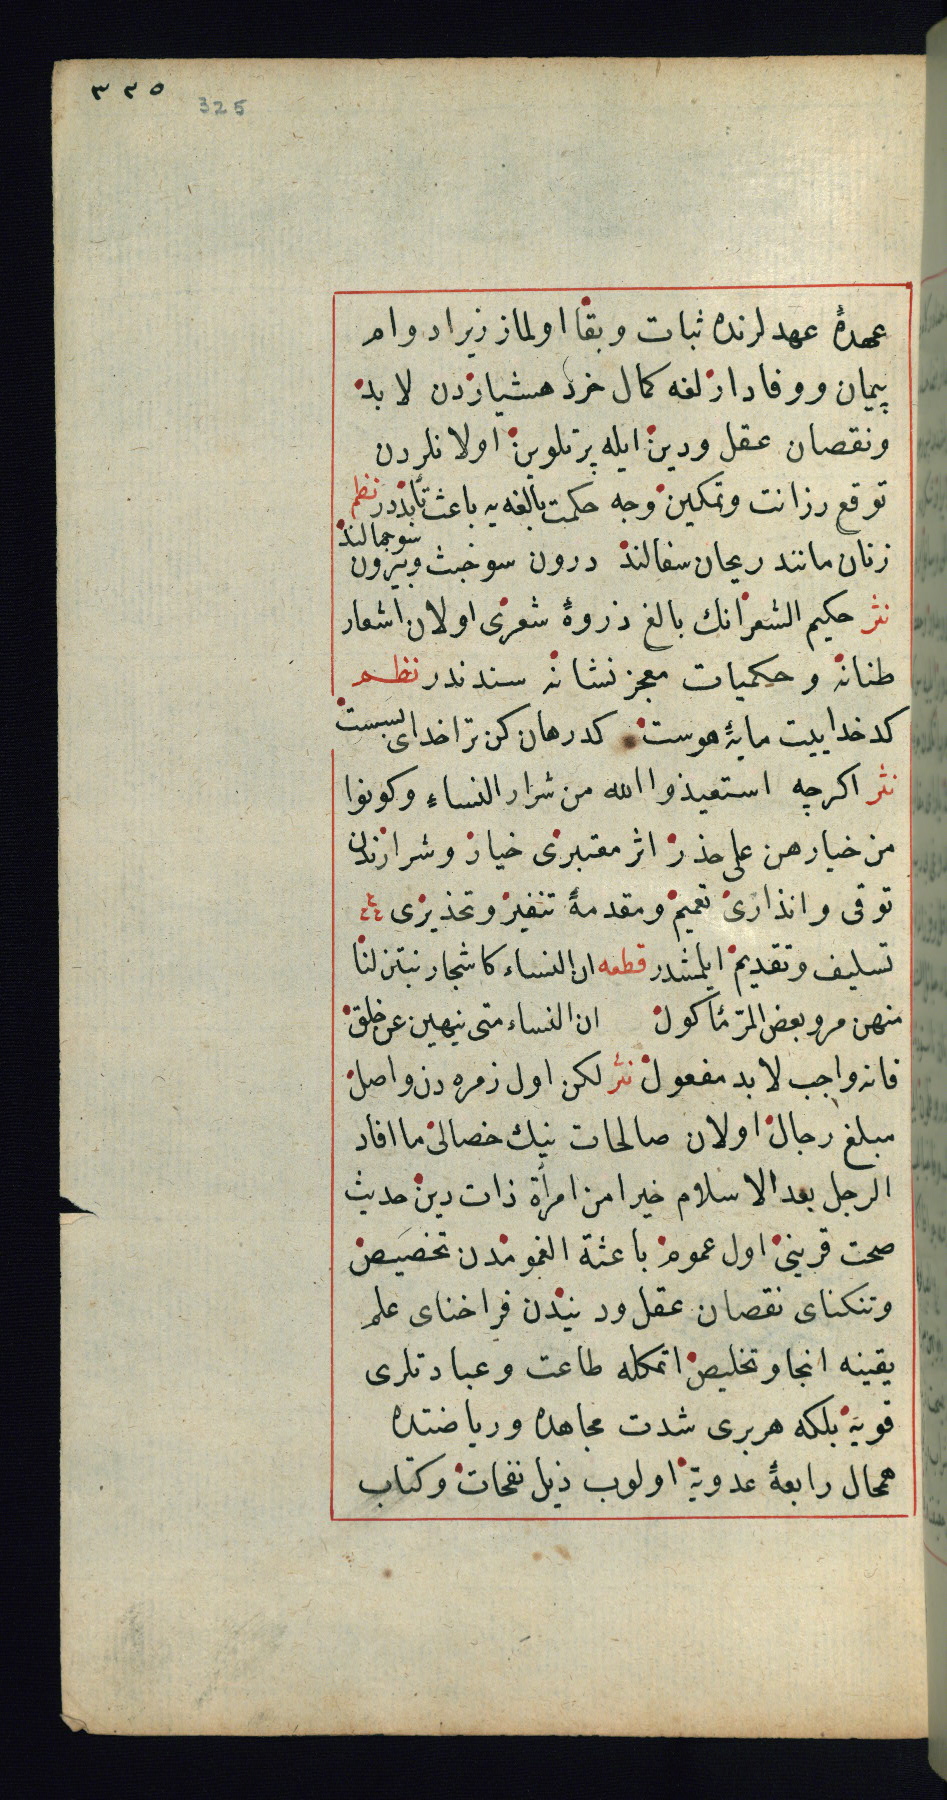 ٣٢٥
325
عهدهٔ عهدلرنده ثبات وبقا اولماز زيرا دوام
پيمان ووفادارلغه كمال خرد هشيارلردن لابد
ونقصان عقل ودين ايله پرتلوين اولانلردن
توقع رزانت وتمكين وجه حكمت بالغه يه باعث تأبذدر نظم
زنان مانند ريحان سفالند درون سو خبث وبيرون سو جمالند
نثر حكيم الشعرانك بالغ ذروهٔ شعرى اولان اشعار
طنانه وحكميات معجز نشانه سندندر نظم
كدخداييت مايهٔ هوست كدرهان كن ترا خداى بسست
نثر اكرچه استعيذوا الله من شرار النساء وكونوا
من خيارهن على حذر اثر معتبرى خيار وشرارندن
توقى وانذارى تعميم ومقدمهٔ تنفير وتحذيرى
تسليف وتقديم ايلمشدر قطعه ان النساء كاشجار نبتن لنا
منهن مر وبعض المر مأكول ان النساء متى ينهين عن خلق
فانه واجب لا بد مفعول نثر لكن اول زمره دن واصل
مبلغ رجال اولان صالحات نيك خصالى ما افاد
الرجل بعد الاسلام خيرا من امرأة ذات دين حديث
صحت قرينى اول عموم باعثة الغمومدن تخصيص
وتنكناى نقصان عقل ودينندن فراخناى علم
يقينه انجا وتخليص اتمكله طاعت وعبادتلرى
قويه بلكه هربرى شدت مجاهده ورياضتده
همحال رابعهٔ عدويه اولوب ذيل نفحات وكتاب